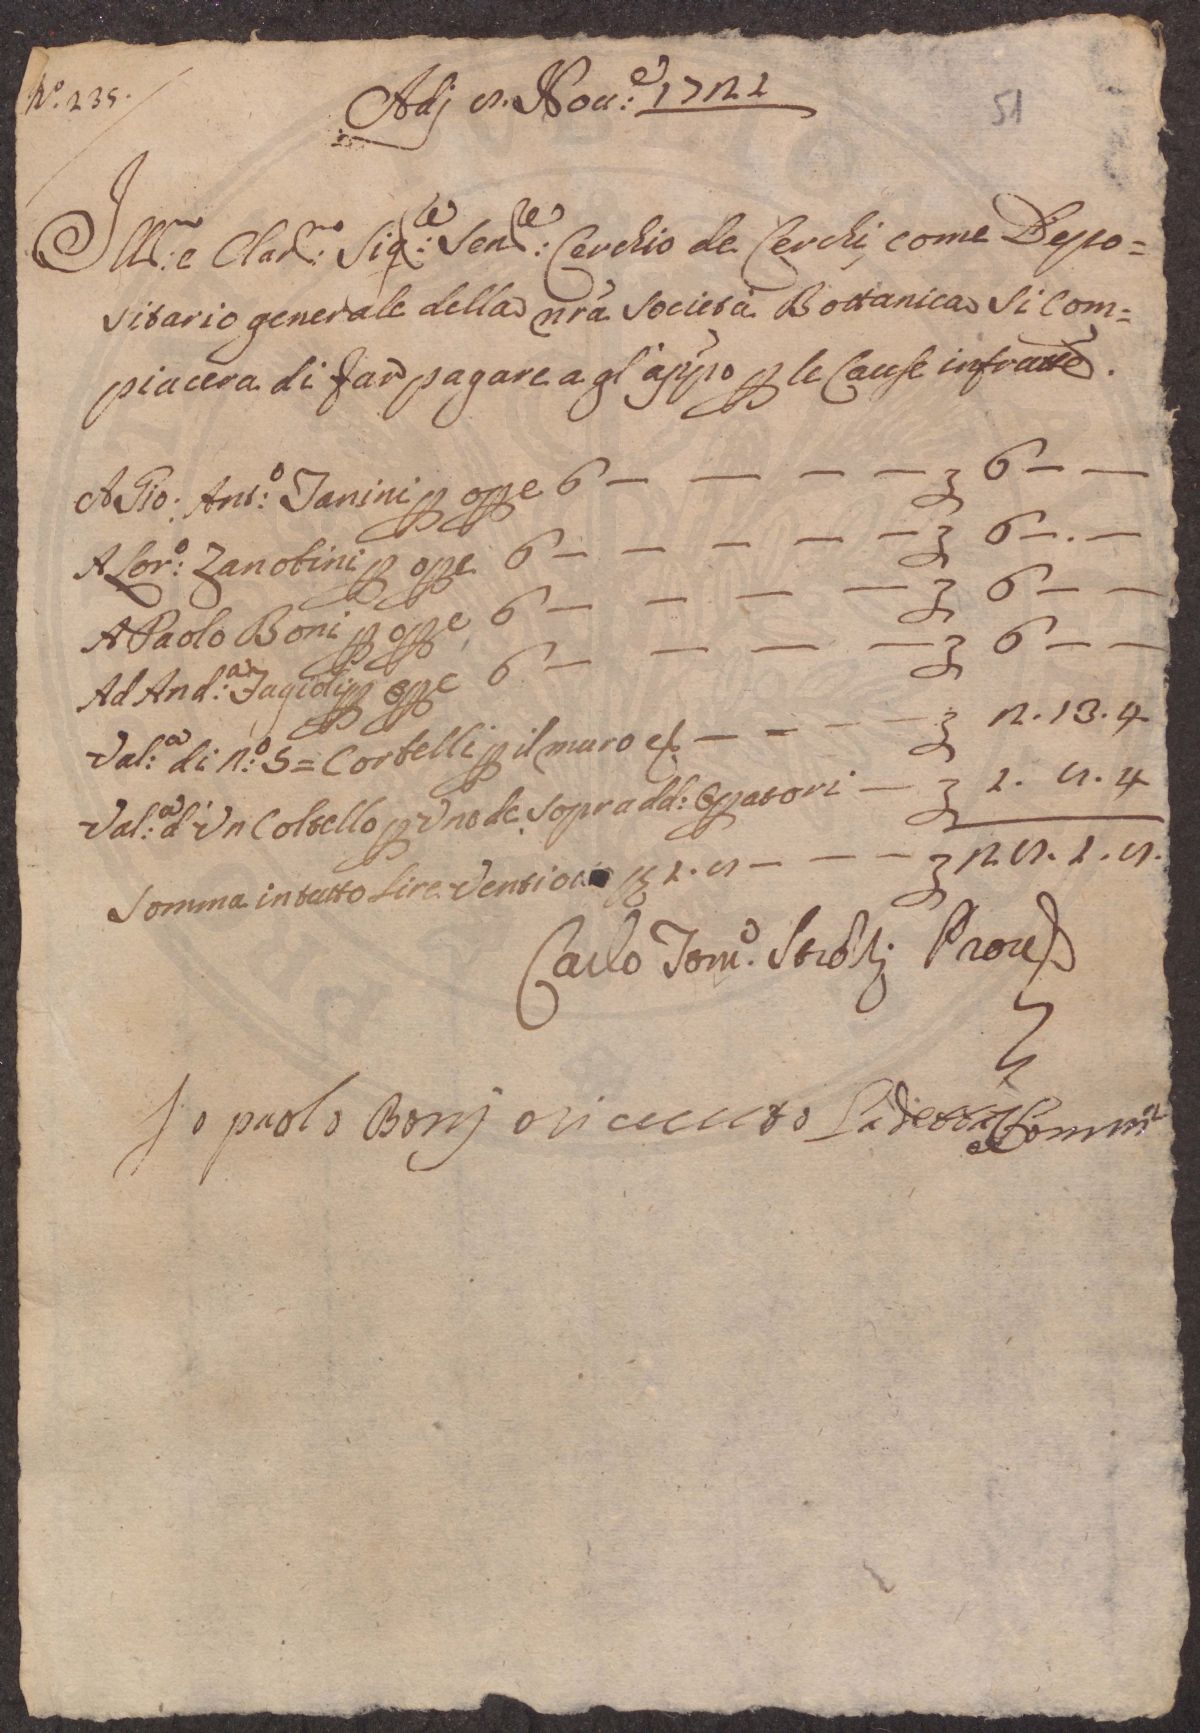 N.º 235.
51
Adj 8. Nou:e 1721
Ill:mo e Clar:mo Sig:re Sen:re Cerchio de Cerchi come Depo=
sitario generale della nrã Società Bottanica si Com=
piacera di far pagare agl'appo p le Cause infratte.
A Gio: Ant:o Tanini p opp e 6 — — — — 3 6 — —
A Lor:o Zanobini p opp e 6 — — — — — 3 6 — . —
A Paolo Boni p opp e 6 — — — — 3 6 — —
Ad And:a Fagioli p opp e 6 — — — — 3 6 — —
Val:a di n:o 5 = Cortelli p il muro — — — — 3 2. 13. 4
Val:a d'Un Coltello p Uno de sopradd: Opatori — 3 1. 8. 4
Somma in tutto Lire Ventiotto 1. 8 — — — 3 28. 1. 8.
Carlo Tom:o Strozj Prou
Jo paolo Bonj o riceeuto La detta Somma